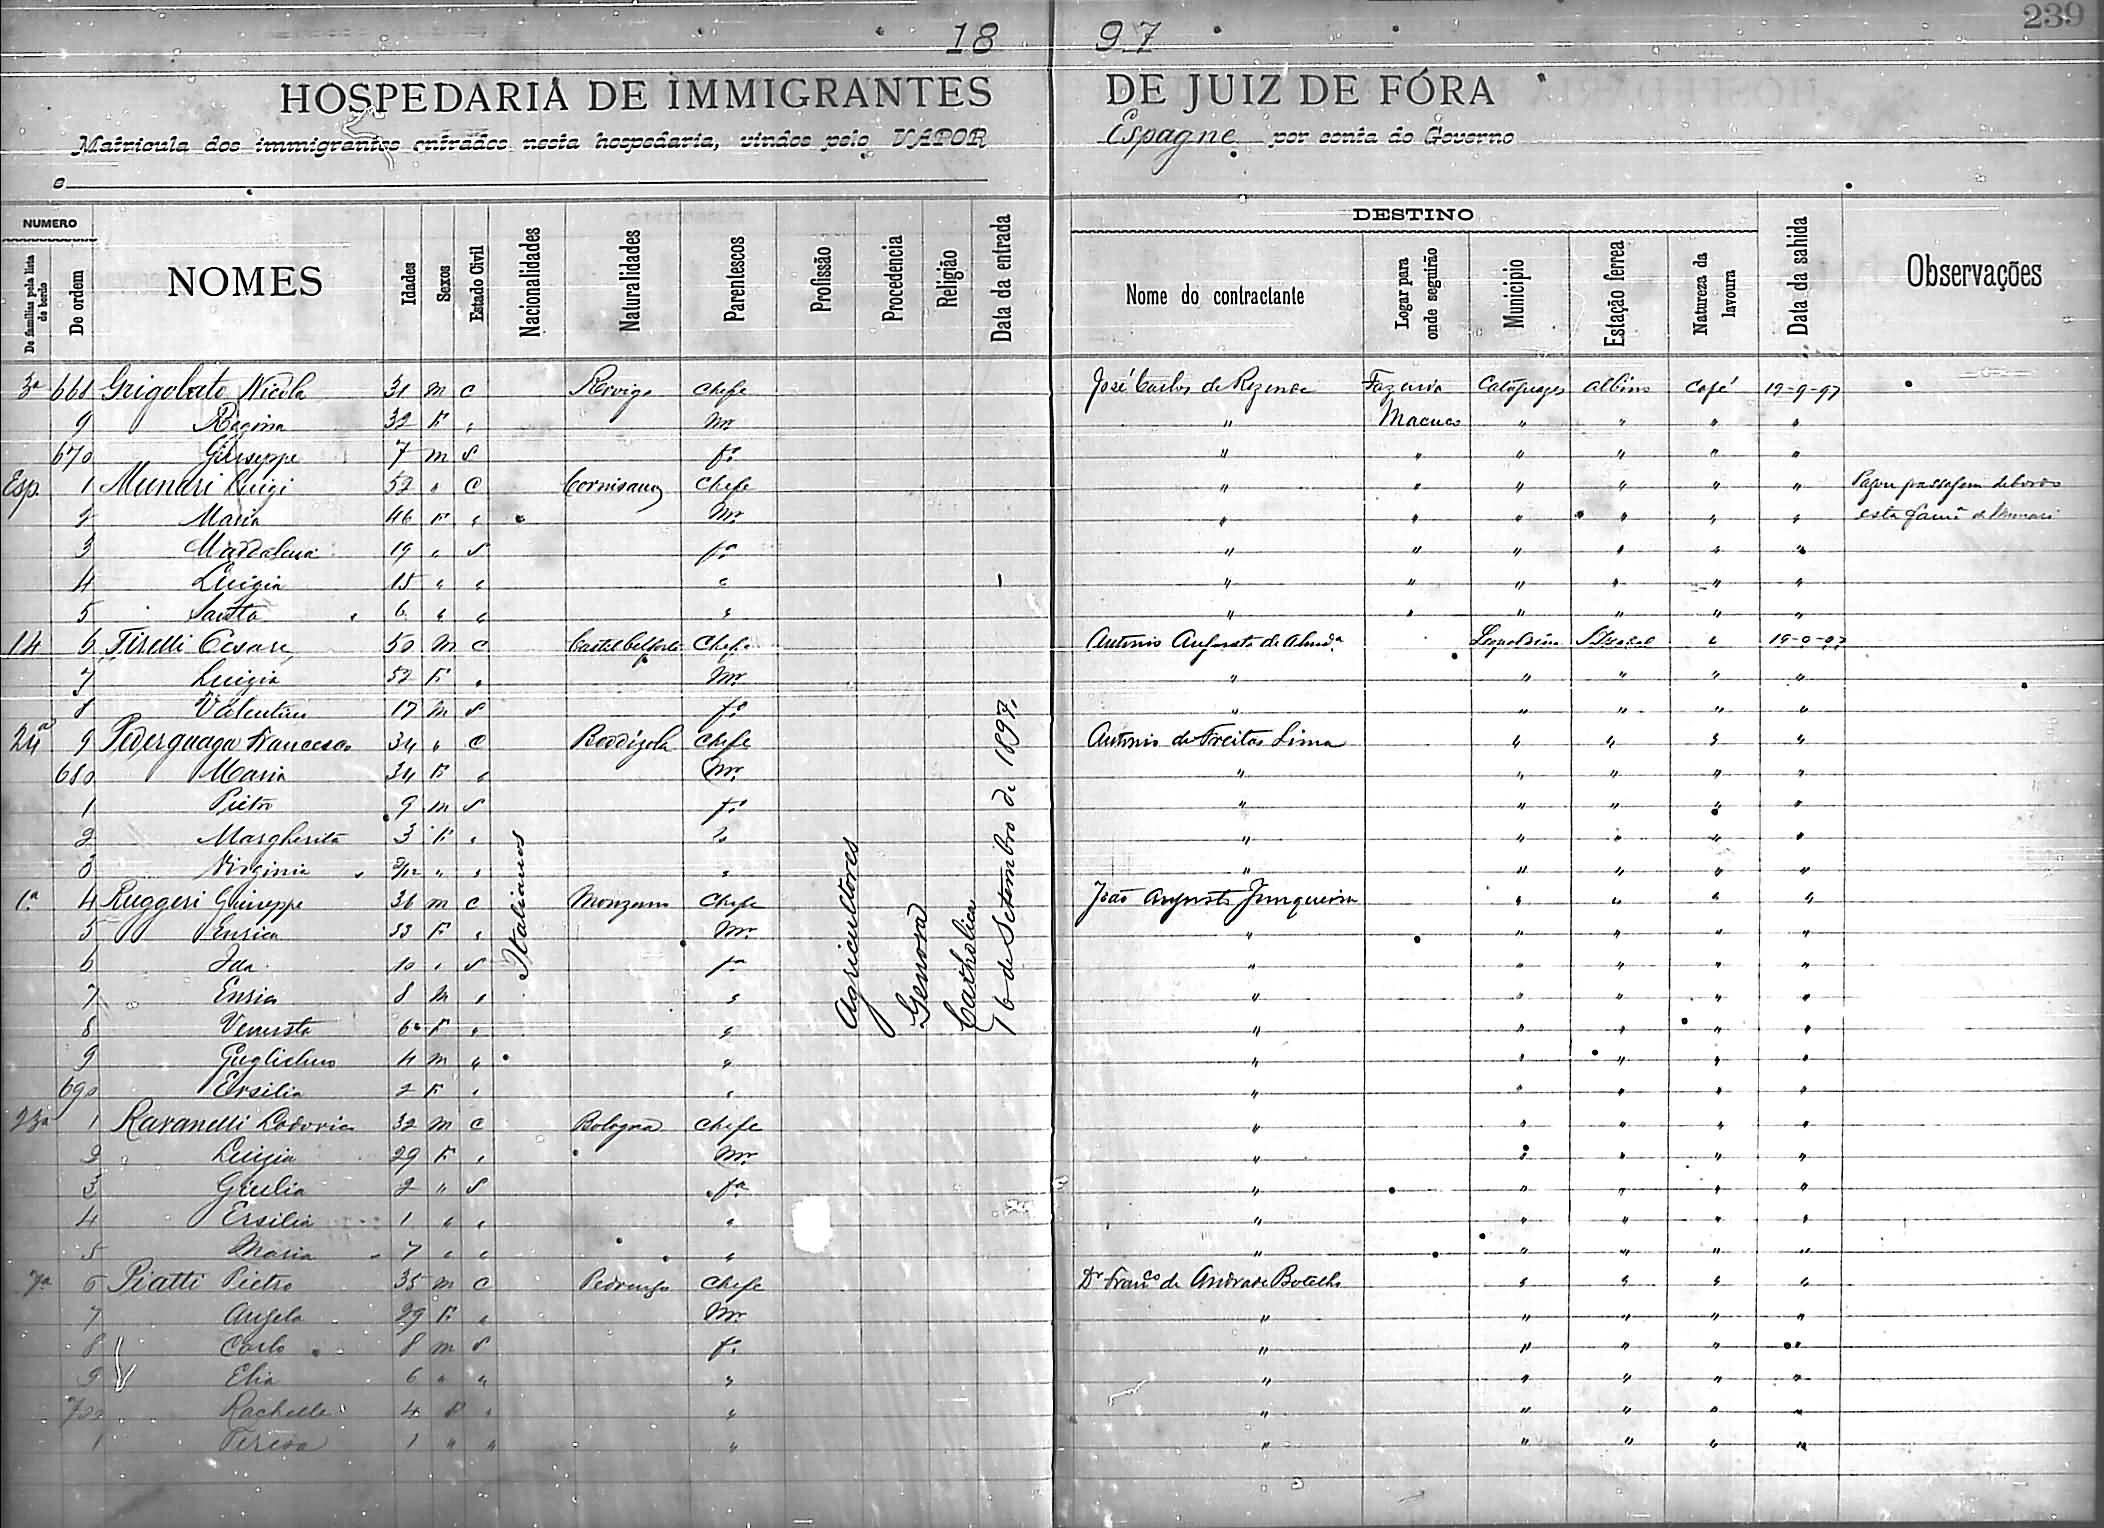 239
18 97
HOSPEDARIA DE IMMIGRANTES DE JUIZ DE FÓRA
Matricula dos immigrantes entrados nesta hospedaria, vindos pelo VAPOR Espagne por conta do Governo
e
NUMERO
De familias pela lista de bordo
De ordem
NOMES
Idades
Sexos
Estado Civil
Nacionalidades
Naturalidades
Parentescos
Profissão
Procedencia
Religião
Data da entrada
DESTINO
Nome do contractante
Logar para onde seguirão
Municipio
Estação ferrea
Natureza da lavoura
Data da sahida
Observações
3ª 668 Grigolato Nicola 31 M C Rovigo Chefe José Carlos de Rezende Fazenda Cataguazes Albino Café 19-9-97
9 Regina 32 F " Mr " Macuco " " " "
670 Giuseppe 7 M S fº " " " " " "
Esp. 1 Munari Luigi 52 " C Chefe " " " " " " Pagou passagem de bordo
2 Maria 46 F " Mr " " " " " " esta famª de Munari
3 Maddalena 19 " S fª " " " " " "
4 Luigia 15 " " " " " " " " "
5 Santa 6 " " " " " " " " "
14 6 Tirelli Cesare 50 M C Castel Belforte Chefe Antonio Augusto de Almdª Leopoldina S. Izabel " 19-9-97
7 Luigia 52 F " Mr " " " " "
8 Valentino 17 M S fº " " " " "
24ª 9 Pederguaga Francesco 34 " C Bedizzole Chefe Antonio de Freitas Lima " " " "
680 Maria 34 F " Mr " " " " "
1 Pietro 9 M S fº " " " " "
2 Margherita 3 F " " " " " " "
3 Virginia " " " " " " " "
1ª 4 Ruggeri Giuseppe 36 M C Chefe João Augusto Junqueira " " " "
5 Enrica 33 F " Mr " " " " "
6 Ida 10 " S fª " " " " "
7 8 M " " " " " " "
8 Venusta 6 F " " " " " " "
9 Guglielmo 4 M " " " " " " "
690 Ersilia 2 F " " " " " " "
23ª 1 Ravanelli Lodovico 32 M C Bologna Chefe " " " " "
2 Luigia 29 F " Mr " " " " "
3 Giulia 2 " S fª " " " " "
4 Ersilia 1 " " " " " " " "
5 Maria 7 " " " " " " " "
7ª 6 Piatti Pietro 35 M C Pedrengo Chefe Dr Francº de Andrade Botelho " " " "
7 Angela 29 F " Mr " " " " "
8 Carlo 8 M S fº " " " " "
9 Elia 6 " " " " " " " "
700 Rachelle 4 F " " " " " " "
1 Teresa 1 " " " " " " " "
Italianos
Agricultores
Genova
Catholica
16 de Setembro de 1897.